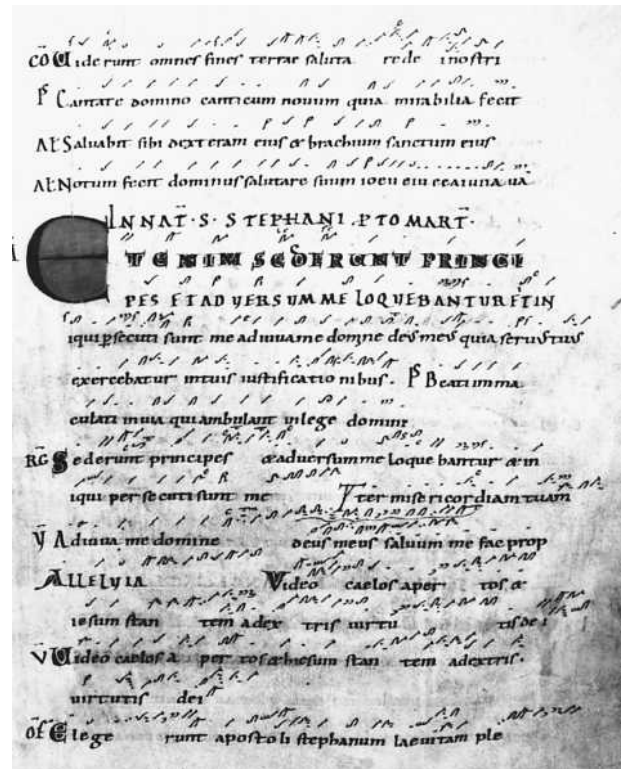 CŌ Uiderunt omnes fines terrae saluta re de i nostri
P̄ Cantate domino canticum nouum quia mirabilia fecit
Salvabit sibi dexteram eius & brachium sanctum eius
Notum fecit dominus salutare suum
IN NAT̄ · S · STEPHANI · PTOMART̄ ·
ETENIM SEDERUNT PRINCI
PES ET ADVERSVM ME LOQUEBANTUR ET IN
iqui persecuti sunt me adiuua me domine deus meus quia seruus tuus
exercebatur in tuis iustificatio nibus · P̄ Beati imma
culati in uia qui ambulant in lege domini
RḠ Sederunt principes & aduersum me loque bantur & in
iqui per se cuti sunt me ter misericordiam tuam
V̄ Adiuua me domine deus meus saluum me fac prop
ALLELVIA Video caelos aper tos &
iesum stan tem a dex tris uirtu tis de i
V̄ Uideo caelos a per tos & hiesum stan tem a dextris ·
uirtutis dei
OF̄ Elege runt aposto li stephanum laeuitam ple